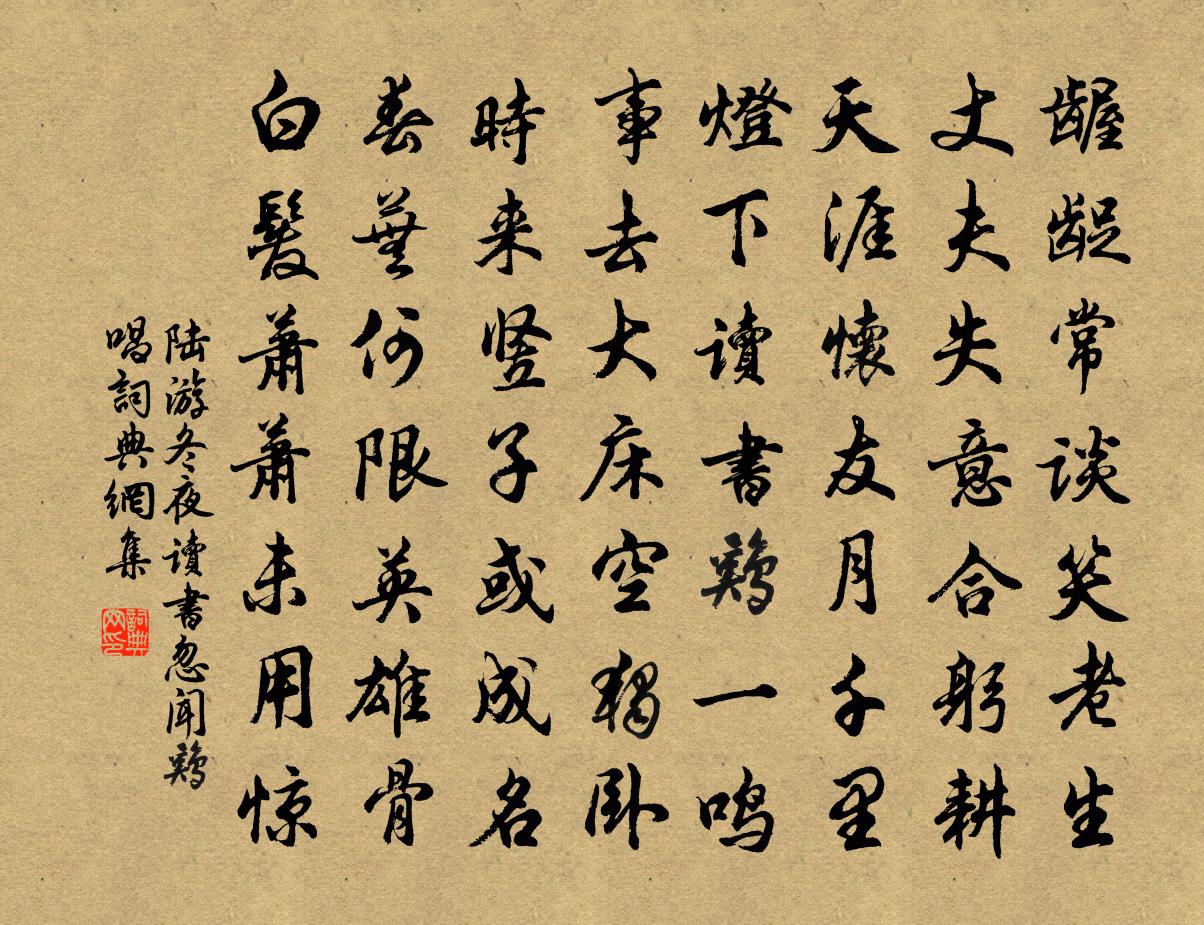 齷齪常談笑老生
丈夫失意合躬耕
天涯懷友月千里
燈下讀書鷄一鳴
事去大床空獨卧
時来竖子或成名
春蕪何限英雄骨
白髮蕭蕭未用惊
陆游冬夜讀書忽闻鷄
唱詞典網集
詞典
网印